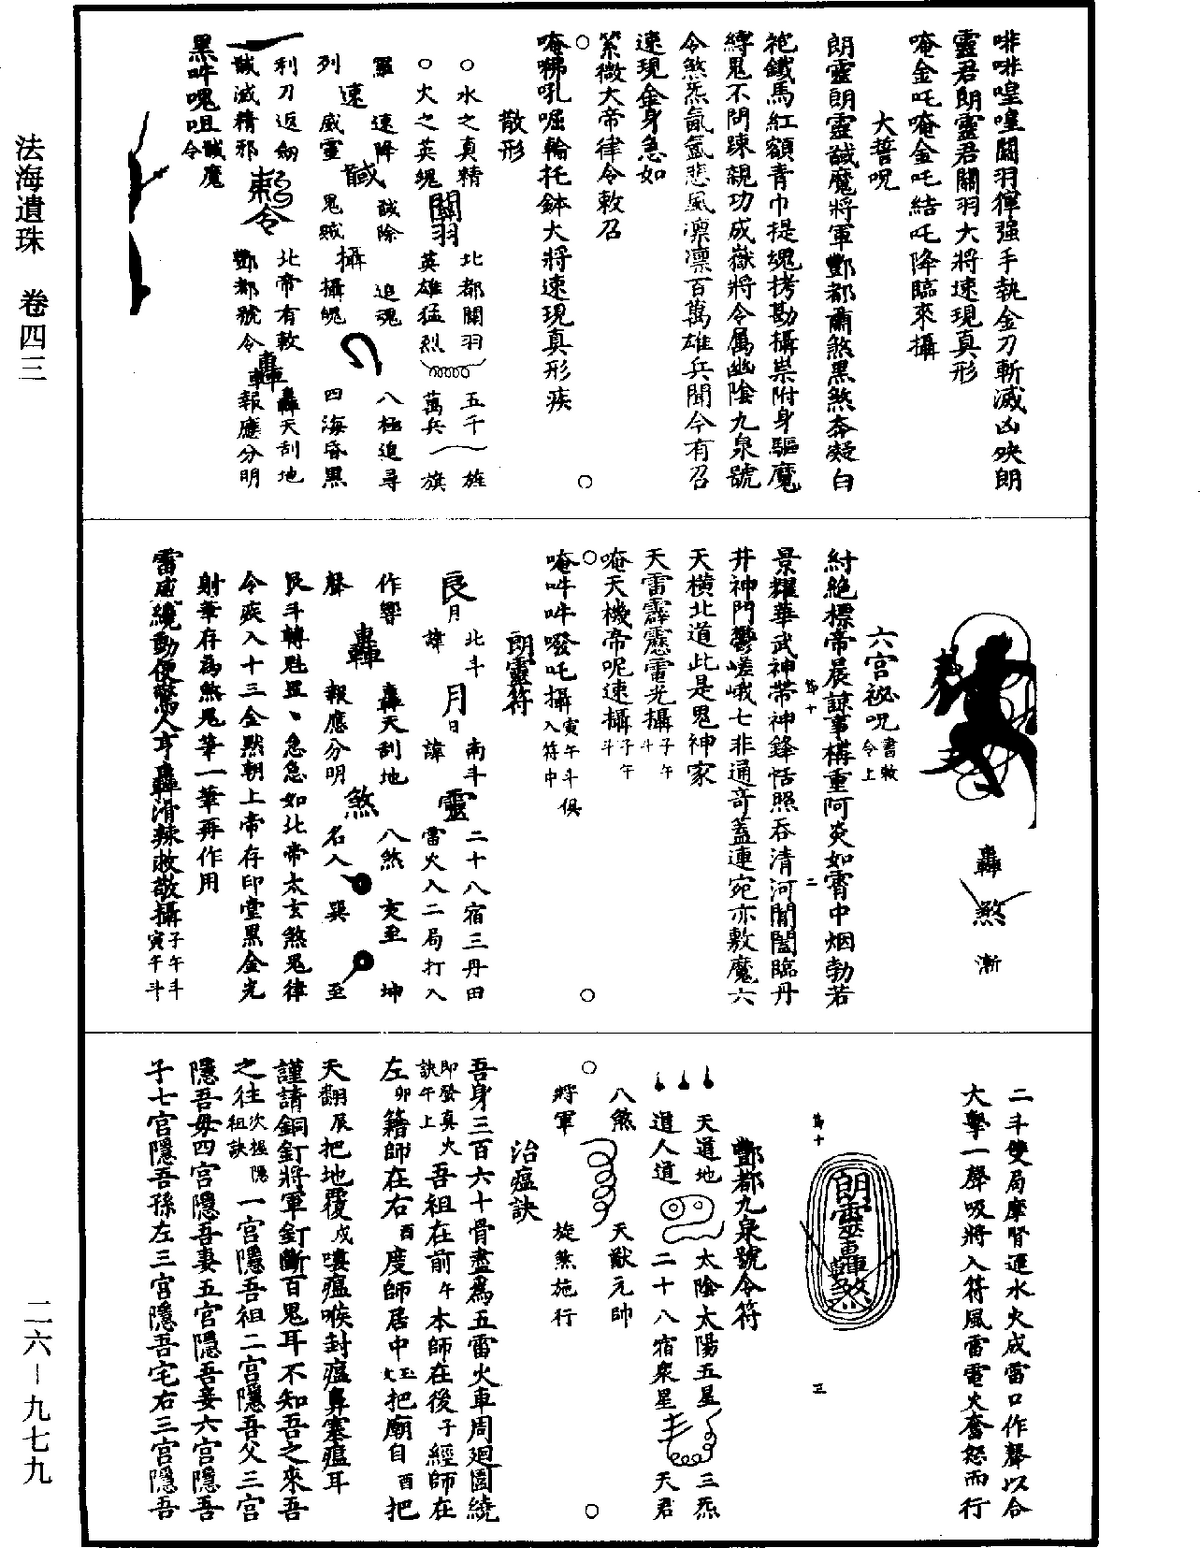 法海遺珠 卷四三
二六－九七九
啡啡喤喤關羽獰强手執金刀斬滅凶殃朗
靈君朗靈君關羽大將速現真形
唵金吒唵金吒結吒降臨來攝
大誓呪
朗靈朗靈馘魔將軍酆都肅煞黑煞奔凝白
袍鐵馬紅額青巾提魂拷勘攝祟附身驅魔
縛鬼不問踈親功成嶽將令属幽陰九泉號
令煞炁氤氳悲風凛凛百萬雄兵聞今有召
速現金身急如
紫微大帝律令敕召
唵咈吼啒輪托鉢大將速現真形疾
散形
水之真精 北都關羽 五千 旌
火之英魂 關羽 英雄猛烈 萬兵 旗
羅 速降 馘除 追魂 八極追尋
速 馘 攝
列 威靈 鬼賊 攝魄 四海昏黑
利刀返劒 北帝有敕 轟天刮地
馘滅精邪 酆都號令 轟 報應分明
黑吽魂咀馘魔 令
轟
煞
漸
六宫祕呪 書敕令上
紂絶標帝晨諒事構重阿炎如霄中烟勃若
景耀華武神帶神鋒恬照吞清河閶闔臨丹
井神門鬱嵯峨七非通奇蓋連宛亦敷魔六
天横北道此是鬼神家
天雷霹靂電光攝 子午斗
唵天機帝呢速攝 子午斗
唵吽吽啜吒攝 寅午斗俱入符中
朗靈符
艮 月 北斗 諱 月 日 南斗 諱 靈 二十八宿三丹田 雷火入二局打入
作響 轟天刮地 八煞 交至 坤
轟 煞
聲 報應分明 名入 巽 至
艮斗轉魁罡、急急如北帝太玄煞鬼律
令疾入十三金㸃朝上帝存印堂黑金光
射筆存為煞鬼筆一筆再作用
雷威繞動便驚人亨轟滑辣敕敬攝 子午斗寅午斗
二斗雙局摩腎運水火成雷口作聲以合
大擊一聲吸將入符風雷電火奮怒而行
第十
朗靈轟煞
三
酆都九泉號令符
天道地 太陰太陽五星 三炁
道人道 二十八宿衆星 天君
八煞 天猷元帥
將軍 旋煞施行
治瘟訣
吾身三百六十骨盡為五雷火車周廻圍繞
即發真火訣午上 吾祖在前 午 本師在後 子 經師在
左 卯 籍師在右 酉 度師居中 玉文 把廟自 酉 把
天翻 辰 把地覆 戌 嘍瘟喉封瘟鼻塞瘟耳
謹請銅釘將軍釘斷百鬼耳不知吾之來吾
之往 次掐隱祖訣 一宫隱吾祖二宫隱吾父三宫
隱吾母四宫隱吾妻五宫隱吾妾六宫隱吾
子七宫隱吾孫左三宫隱吾宅右三宫隱吾